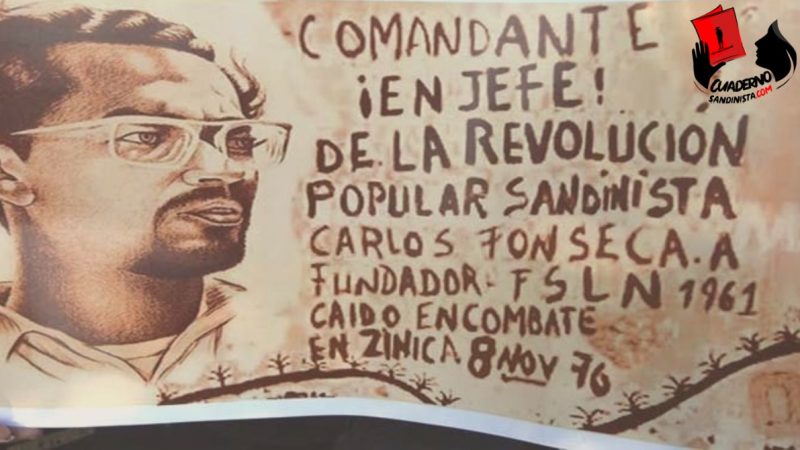 COMANDANTE
¡EN JEFE!
DE LA REVOLUCIÓN
POPULAR SANDINISTA
CARLOS FONSECA. A
FUNDADOR- FSLN 1961
CAIDO EN COMBATE
EN ZINICA 8 NOV 76
CUADERNO
SANDINISTA.COM